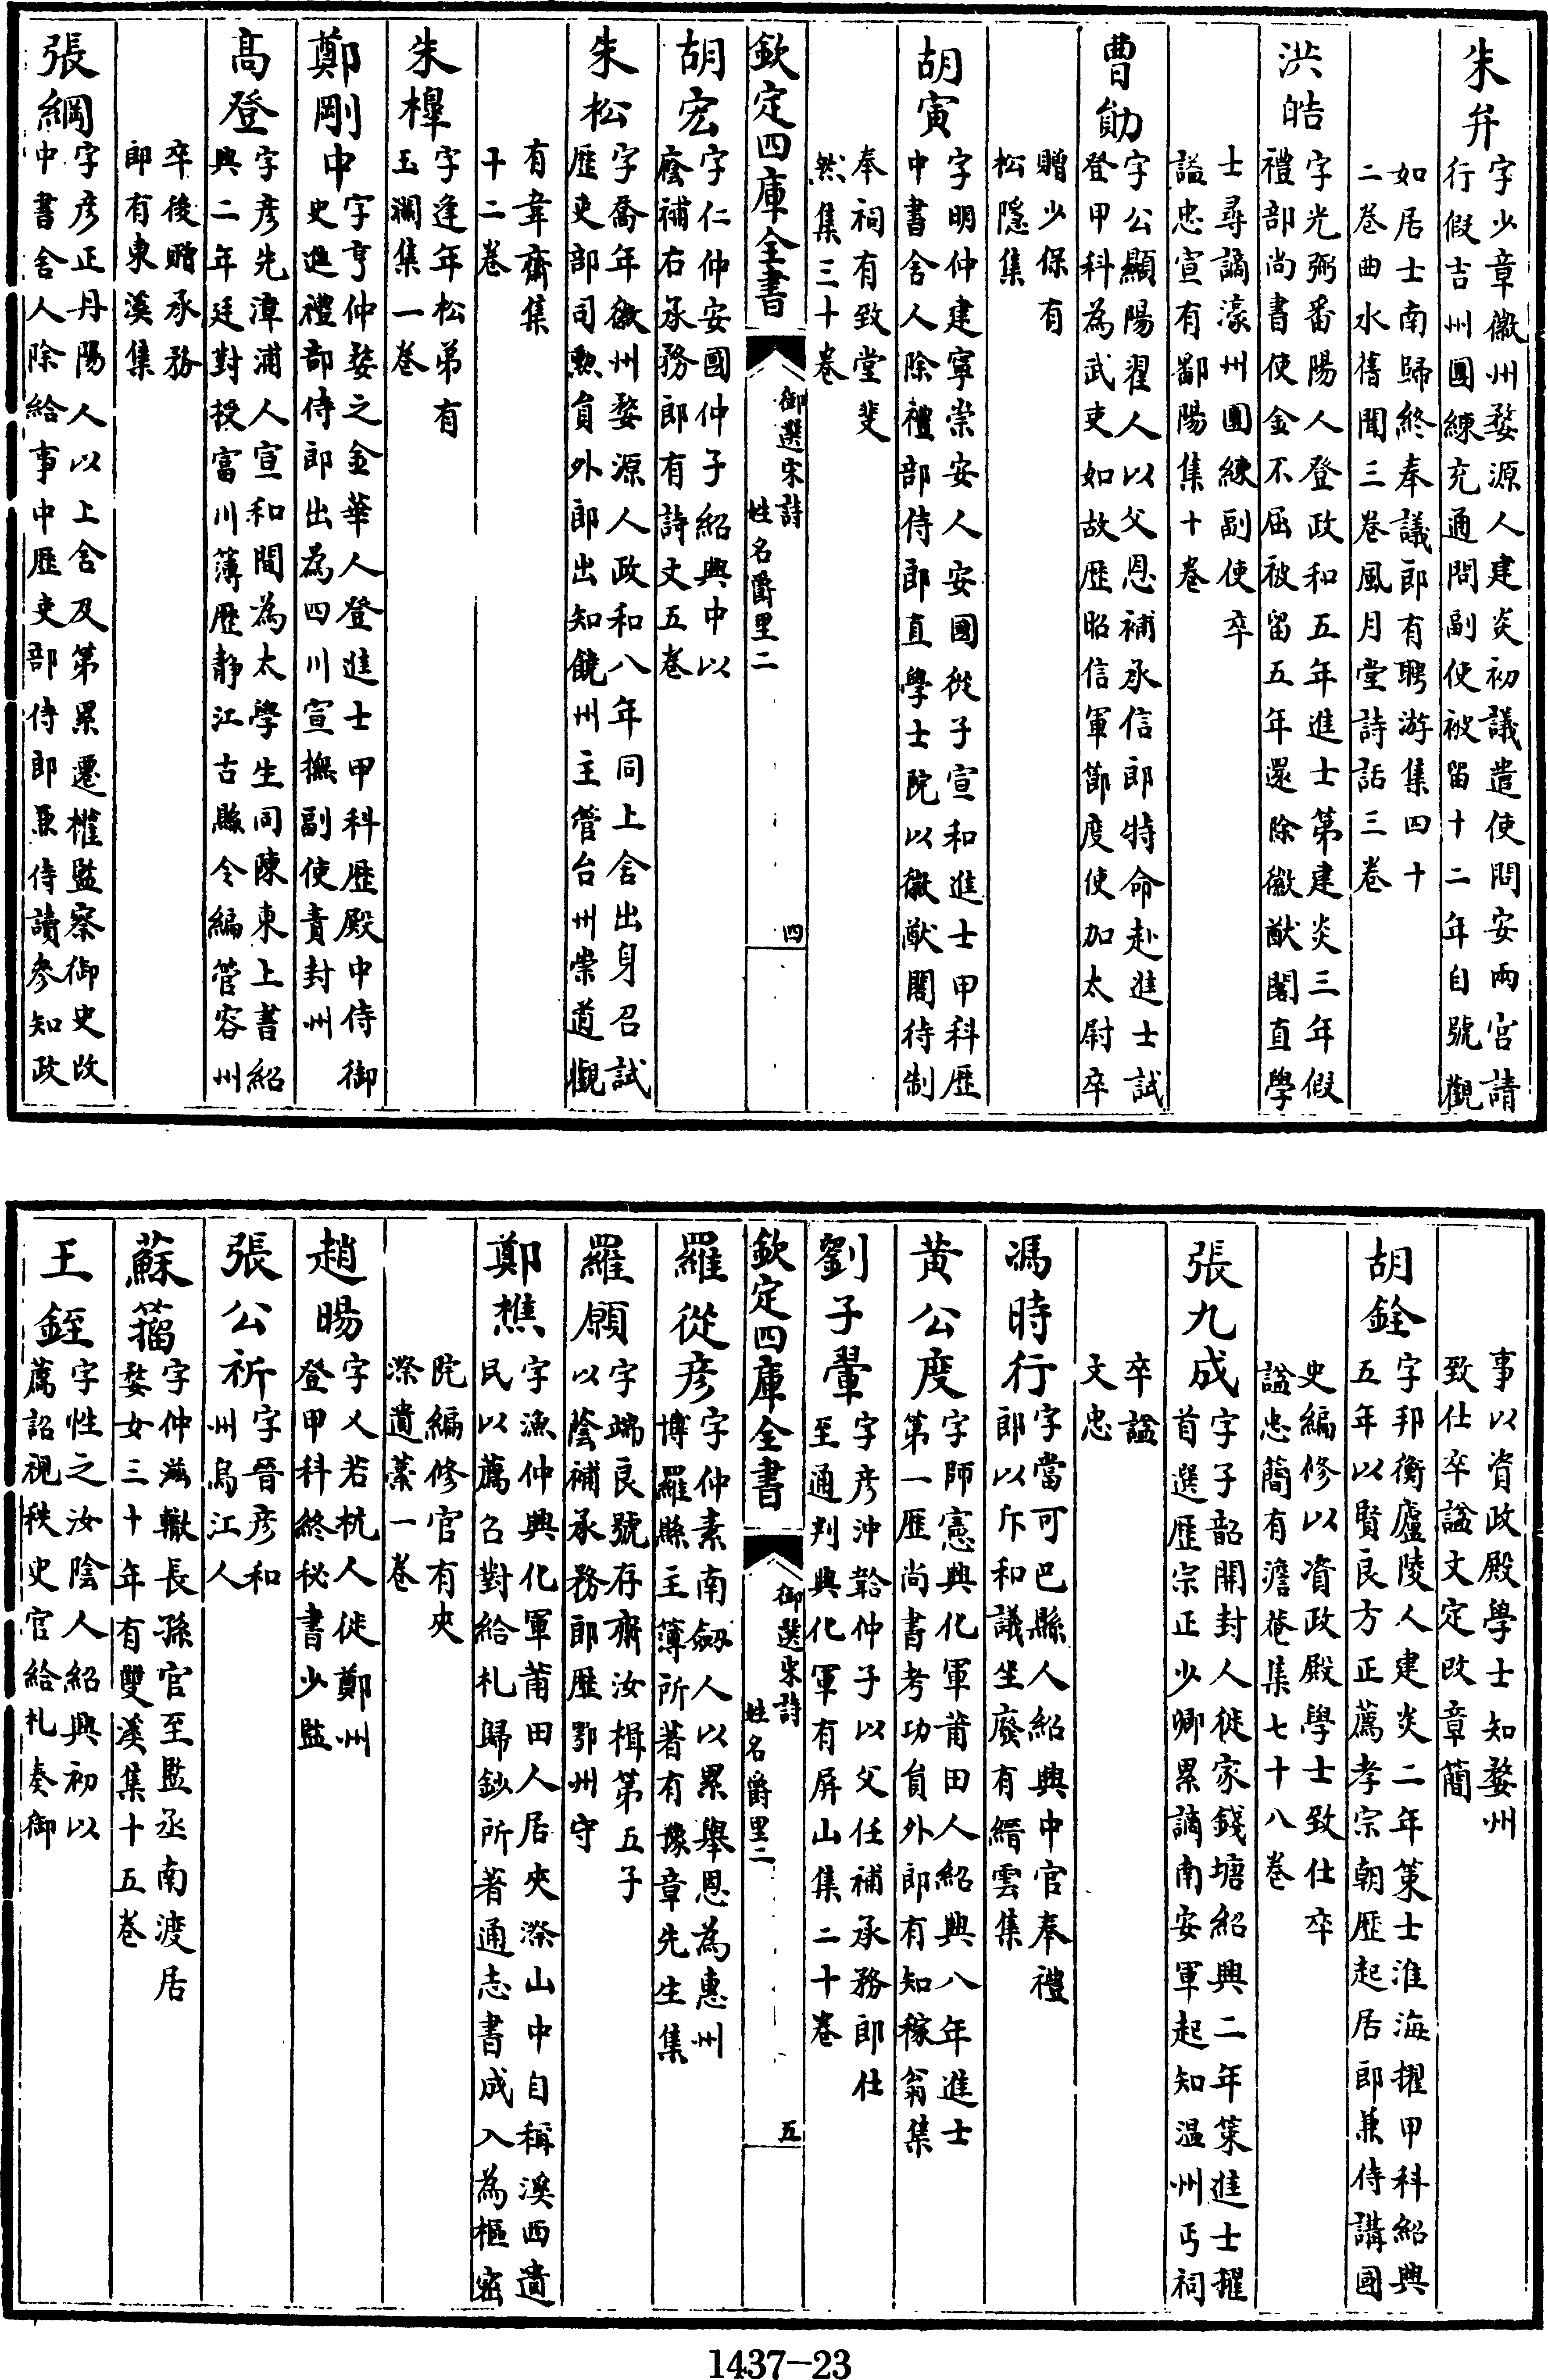 朱弁
字少章徽州婺源人建炎初議遣使問安兩宮請
行假吉州團練充通問副使被留十二年自號觀
如居士南歸終奉議郎有聘游集四十
二巻曲水舊聞三巻風月堂詩話三巻
洪皓
字光弼番陽人登政和五年進士第建炎三年假
禮部尚書使金不屈被留五年還除徽猷閣直學
士尋謫濠州團練副使卒
諡忠宣有鄱陽集十巻
曹勛
字公顯陽翟人以父恩補承信郎特命赴進士試
登甲科為武吏如故歴昭信軍節度使加太尉卒
贈少保有
松隱集
胡寅
字明仲建寧崇安人安國從子宣和進士甲科歴
中書舍人除禮部侍郎直學士院以徽猷閣待制
奉祠有致堂斐
然集三十巻
欽定四庫全書
御選宋詩
姓名爵里二
四
胡宏
字仁仲安國仲子紹興中以
廕補右承務郎有詩文五巻
朱松
字喬年徽州婺源人政和八年同上舍出身召試
歴吏部司勲員外郎出知饒州主管台州崇道觀
有韋齋集
十二巻
朱槔
字逢年松弟有
玉瀾集一巻
鄭剛中
字亨仲婺之金華人登進士甲科歴殿中侍御
史進禮部侍郎出為四川宣撫副使責封州
高登
字彦先漳浦人宣和間為太學生同陳東上書紹
興二年廷對授富川簿歴靜江古縣令編管容州
卒後贈承務
郎有東溪集
張綱
字彦正丹陽人以上舍及第累遷權監察御史改
中書舍人除給事中歴吏部侍郎兼侍讀參知政
事以資政殿學士知婺州
致仕卒諡文定改章簡
胡銓
字邦衡廬陵人建炎二年策士淮海擢甲科紹興
五年以賢良方正薦孝宗朝歴起居郎兼侍講國
史編修以資政殿學士致仕卒
諡忠簡有澹菴集七十八巻
張九成
字子韶開封人徙家錢塘紹興二年策進士擢
首選歴宗正少卿累謫南安軍起知温州丐祠
卒諡
文忠
馮時行
字當可巴縣人紹興中官奉禮
郎以斥和議坐廢有縉雲集
黄公度
字師憲興化軍莆田人紹興八年進士
第一歴尚書考功員外郎有知稼翁集
劉子翬
字彦沖韐仲子以父任補承務郎仕
至通判興化軍有屏山集二十巻
欽定四庫全書
御選宋詩
姓名爵里二
五
羅從彦
字仲素南劔人以累舉恩為惠州
博羅縣主簿所著有豫章先生集
羅願
字端良號存齋汝楫第五子
以蔭補承務郎歴鄂州守
鄭樵
字漁仲興化軍莆田人居夾漈山中自稱溪西遺
民以薦召對給札歸鈔所著通志書成入為樞密
院編修官有夾
漈遺藁一巻
趙暘
字乂若杭人徙鄭州
登甲科終秘書少監
張公祈
字晉彦和
州烏江人
蘇籀
字仲滋轍長孫官至監丞南渡居
婺女三十年有雙溪集十五巻
王銍
字性之汝陰人紹興初以
薦詔視秩史官給札奏御
1437-23